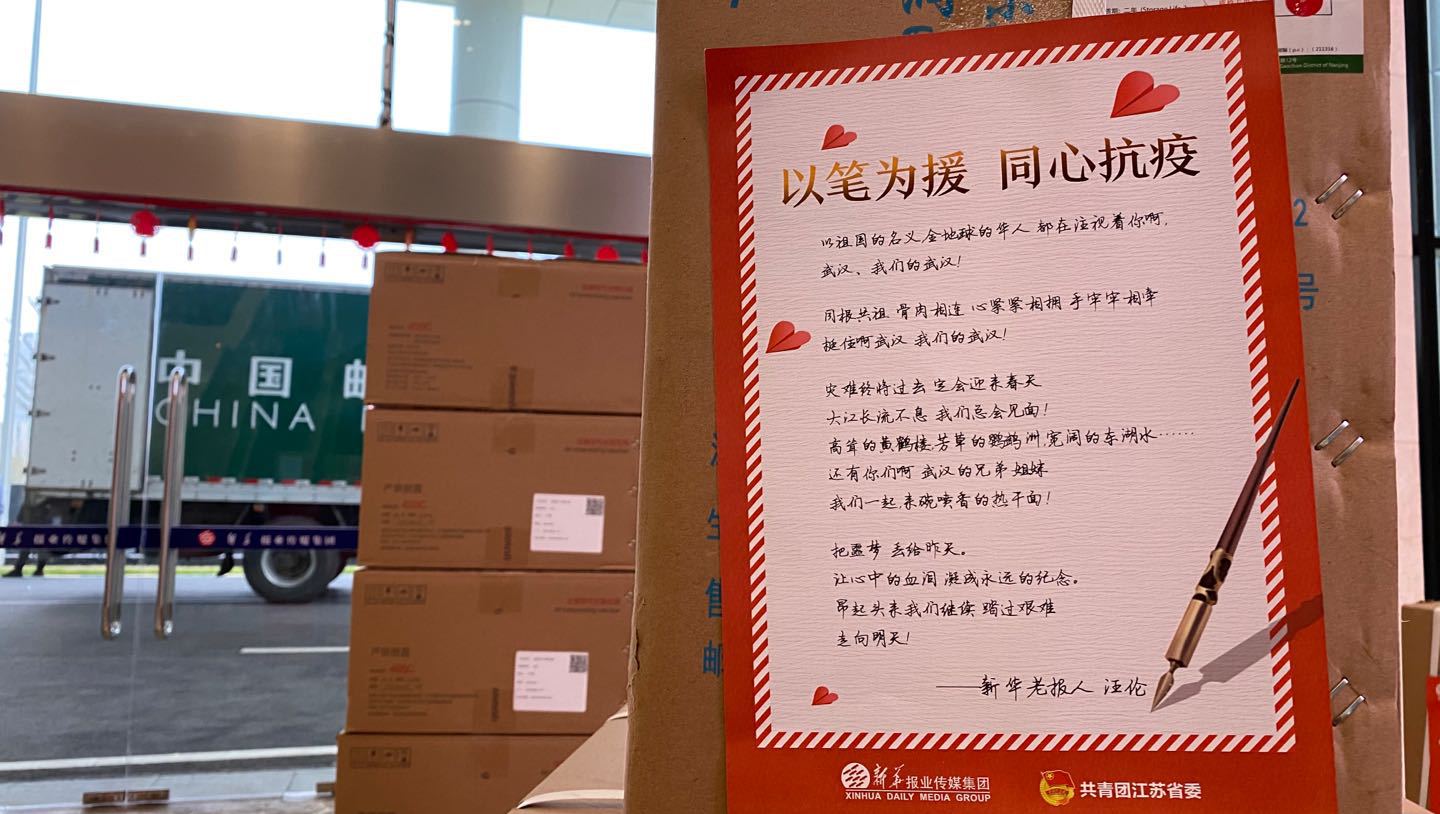 以笔为援 同心抗疫
以祖国的名义,全地球的华人 都在注视着你啊,
武汉、我们的武汉!
同根共祖 骨肉相连 心紧紧相拥 手牢牢相牵
挺住啊武汉 我们的武汉!
灾难终将过去 定会迎来春天
大江长流不息 我们总会见面!
高耸的黄鹤楼,芳草的鹦鹉洲,宽阔的东湖水……
还有你们啊 武汉的兄弟姐妹
我们一起来碗喷香的热干面!
把噩梦 丢给昨天。
让心中的血泪 凝成永远的纪念。
昂起头来我们继续 踏过艰难
走向明天!
——新华老报人 汪伦
新华报业传媒集团
XINHUA DAILY MEDIA GROUP
共青团江苏省委
中国邮
CHINA
报业传媒集团